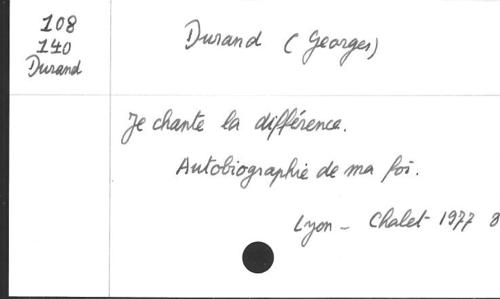 108
140
Durand
Durand (Georges)
Je chante la différence.
Autobiographie de ma foi.
Lyon - Chalet 1977 8